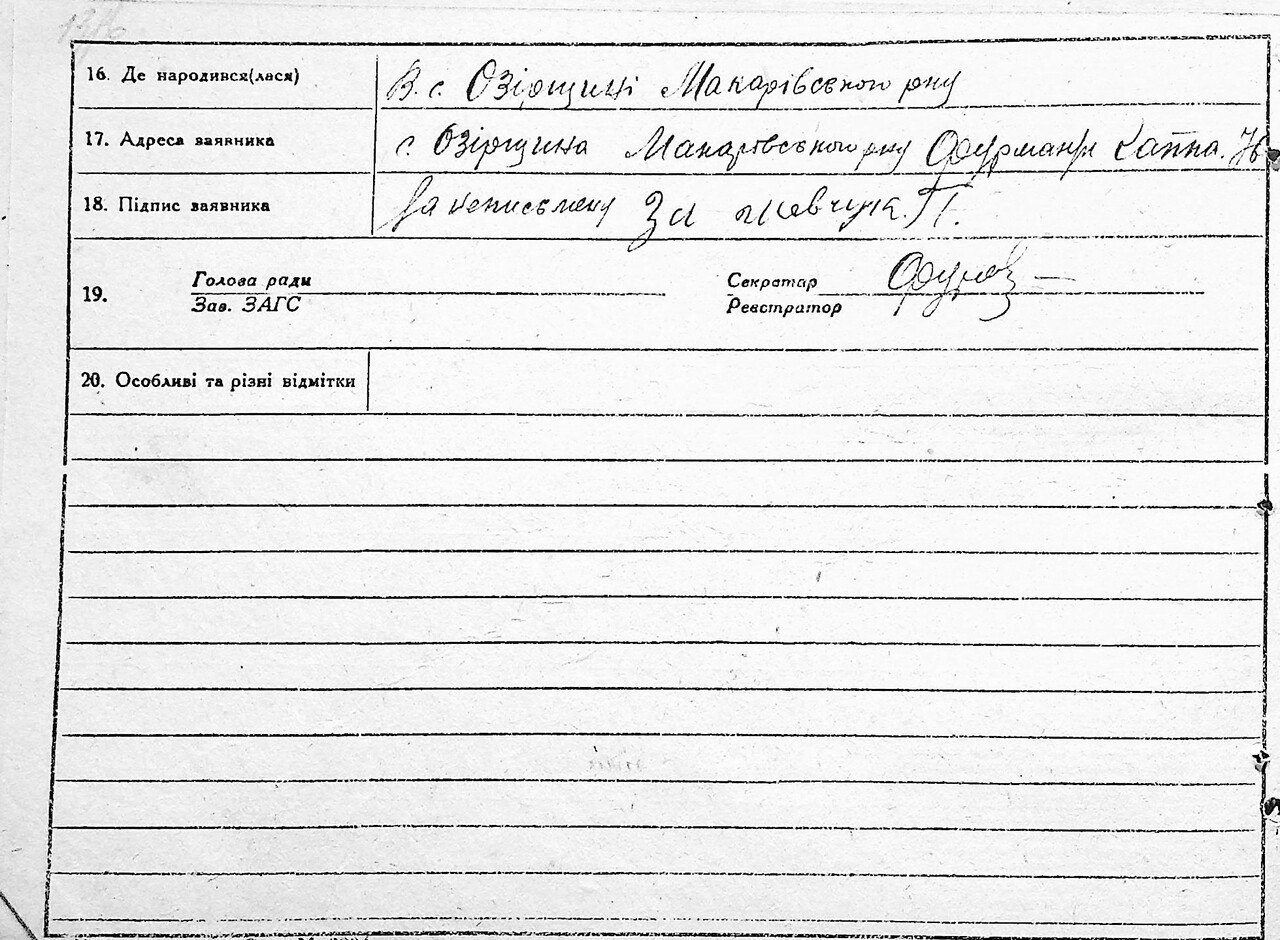 16. Де народився(лася) В. с. Озірщині Макарівського рну
17. Адреса заявника с. Озірщина Макарівського рну Фурман
18. Підпис заявника За неписьмену За Шевчук. П.
19. Голова ради Секретар
Зав. ЗАГС Реєстратор
20. Особливі та різні відмітки